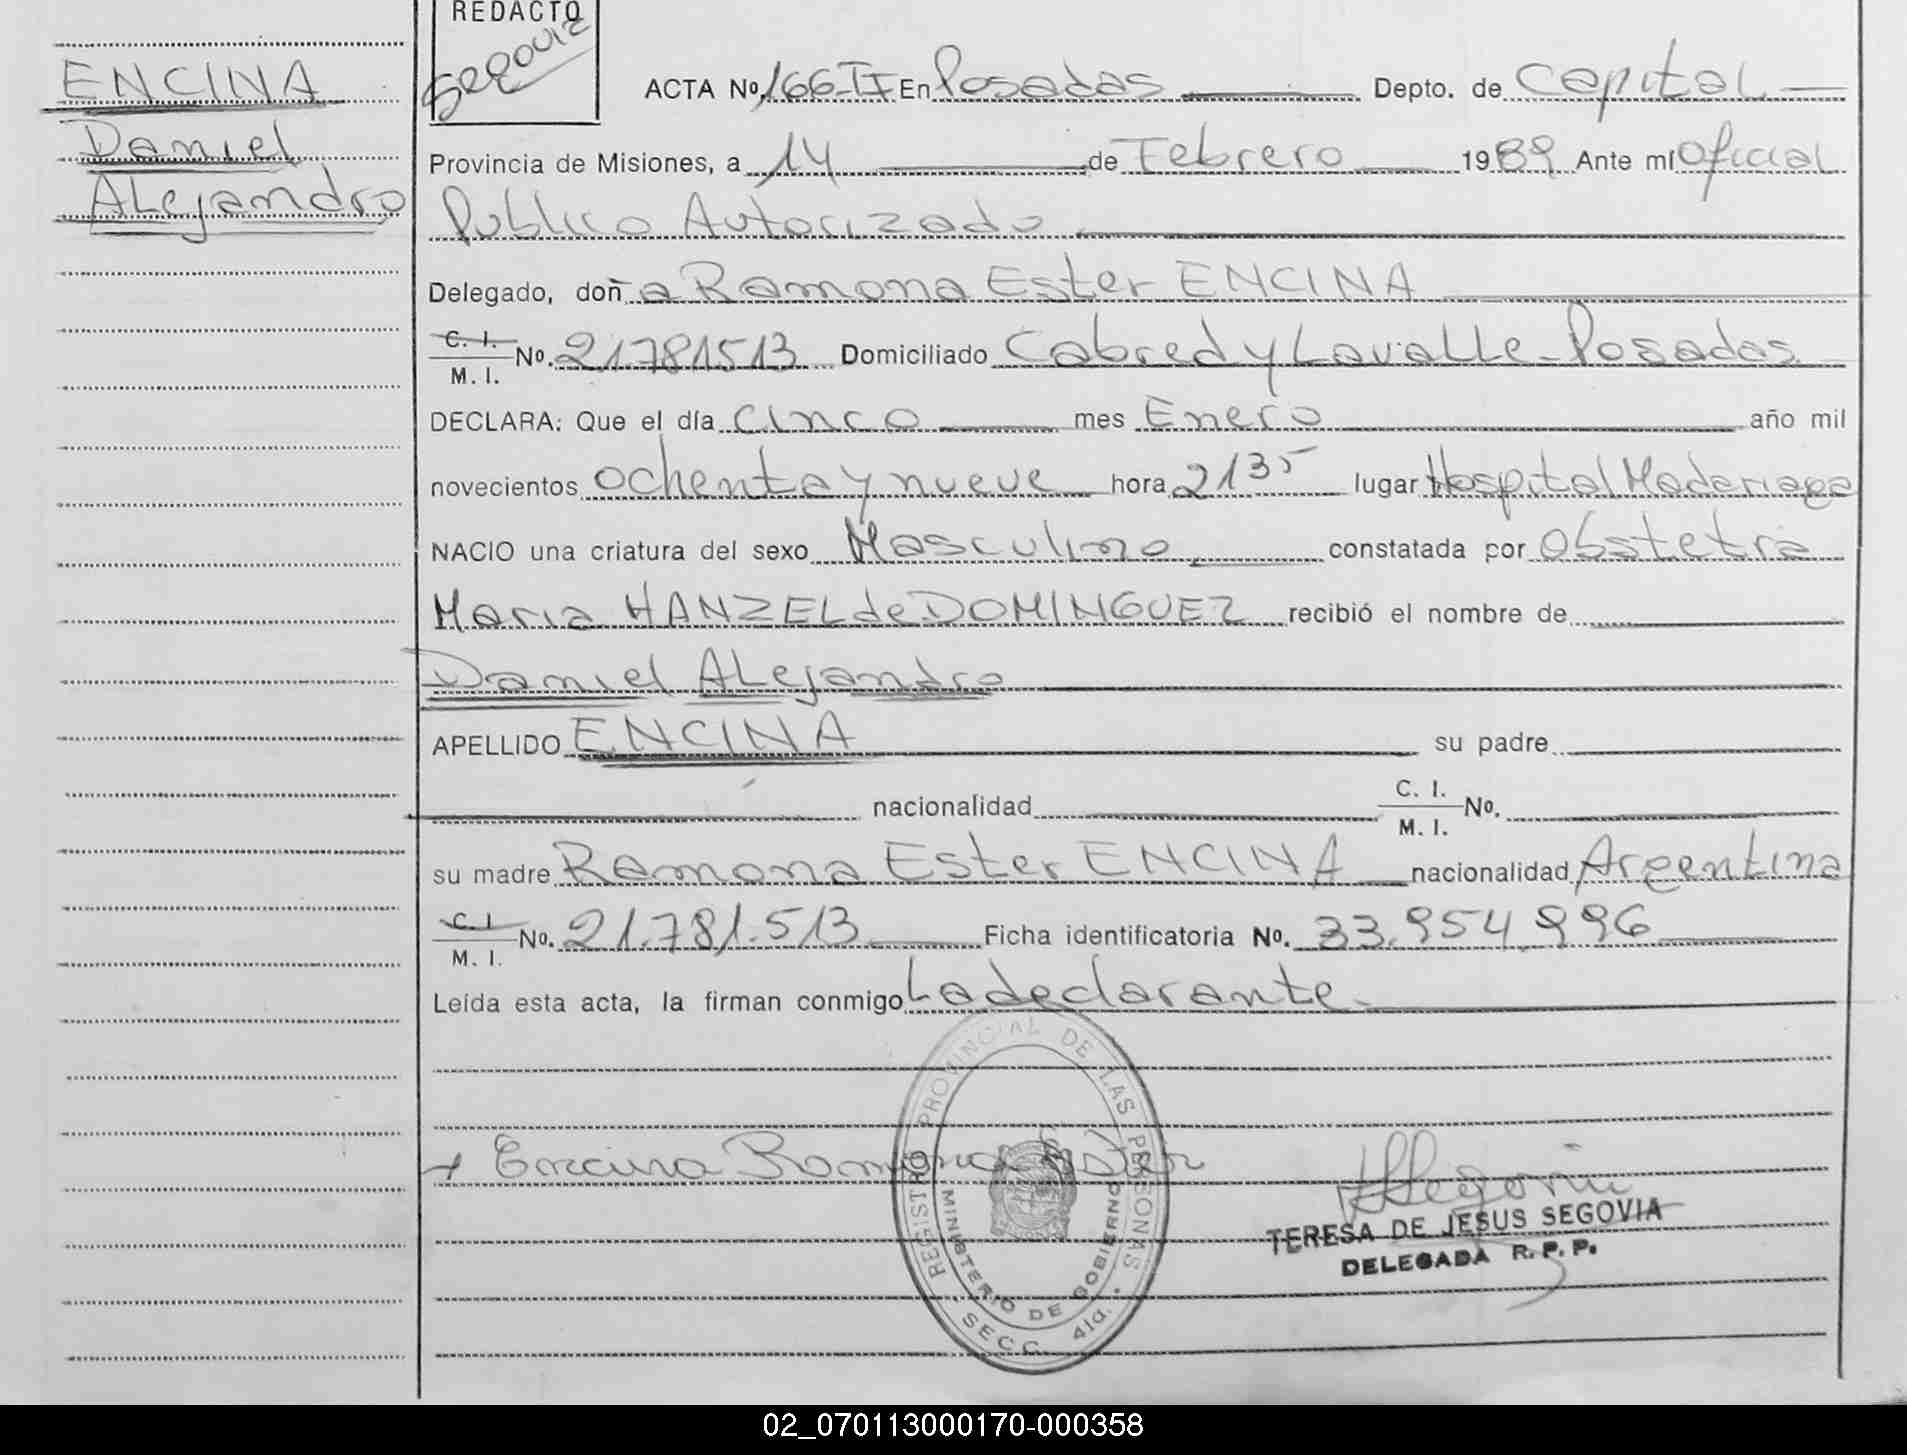 ENCINA
Daniel
Alejandro
REDACTO
Segovia
ACTA Nº 166-II En Posadas Depto. de Capital
Provincia de Misiones, a 14 de Febrero 1989 Ante mí Oficial
Publico Autorizado
Delegado, doña Ramona Ester ENCINA
C. I.
M. I. Nº. 21.781.513 Domiciliado Cabred y Lavalle - Posadas
DECLARA: Que el día cinco mes Enero año mil
novecientos ochenta y nueve hora 2135 lugar Hospital Madariaga
NACIO una criatura del sexo Masculino constatada por Obstetra
Maria HANZEL de DOMINGUEZ recibió el nombre de
Daniel Alejandro
APELLIDO ENCINA su padre
nacionalidad C. I.
M. I. Nº.
su madre Ramona Ester ENCINA nacionalidad Argentina
C. I.
M. I. Nº. 21.781.513 Ficha identificatoria Nº. 33.954.996
Leída esta acta, la firman conmigo La declarante.
Encina Ramona Ester
REGISTRO PROVINCIAL DE LAS PERSONAS
MINISTERIO DE GOBIERNO
SECC. 4ta.
Segovia
TERESA DE JESUS SEGOVIA
DELEGADA R. P. P.
02_070113000170-000358